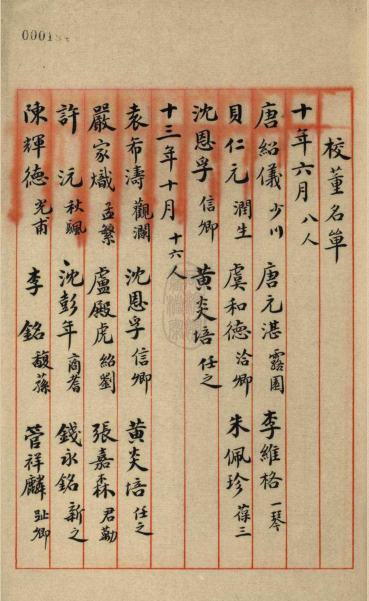 校董名單
十年六月 八人
唐紹儀 少川 唐元湛 露園 李維格 一琴
貝仁元 潤生 虞和德 洽卿 朱佩珍 葆三
沈恩孚 信卿 黃炎培 任之
十三年十月 十六人
袁希濤 觀瀾 沈恩孚 信卿 黃炎培 任之
嚴家熾 孟繁 盧殿虎 紹劉 張嘉森 君勱
許沅 秋颿 沈彭年 商耆 錢永銘 新之
陳輝德 光甫 李銘 馥蓀 管祥麟 趾卿